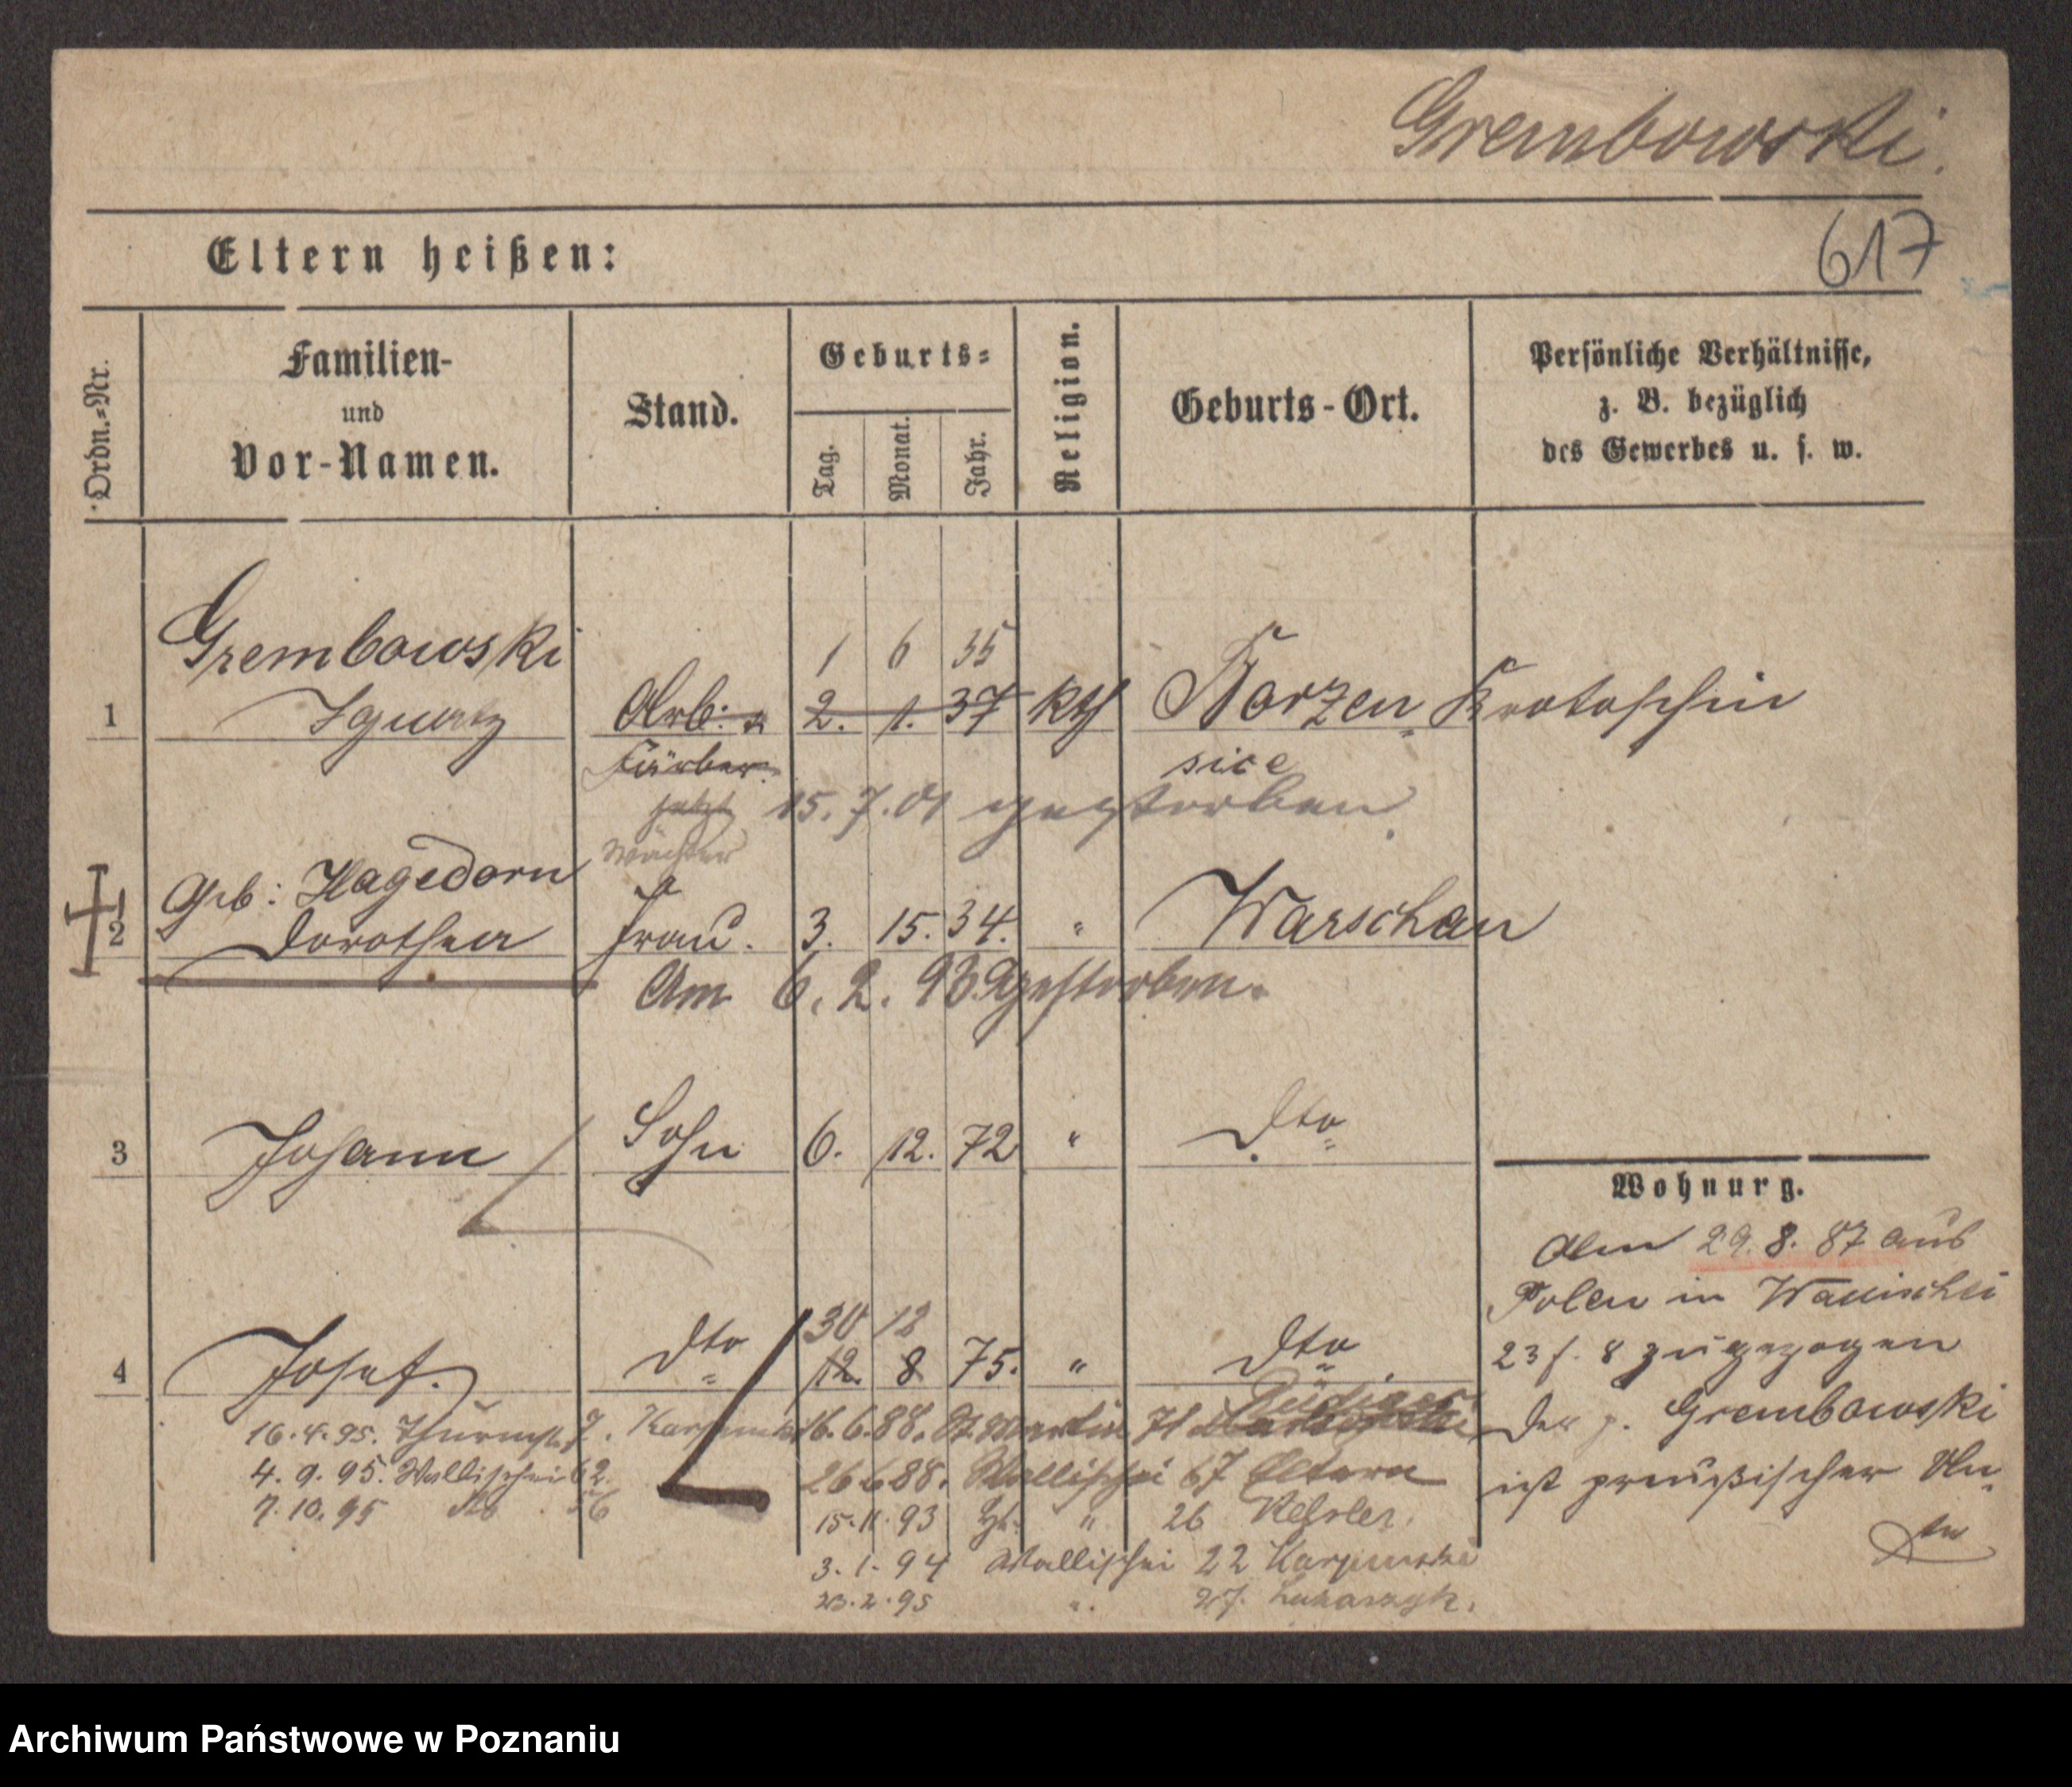 Grembowski.
617
Eltern heißen:
Ordn.=Nr.
Familien-
und
Vor-Namen.
Stand.
Geburts=
Tag.
Monat.
Jahr.
Religion.
Geburts-Ort.
Persönliche Verhältnisse,
z. B. bezüglich
des Gewerbes u. s. w.
Grembowski 1 6 35
1 Ignatz Arb: 2. 1. 37 kth Korzen Krotoschin
Färber
jetzt 15. 7. 01 gestorben
Wächter
Geb: Hagedorn
2 Dorothea Frau. 3. 15. 34. " Warschau
Am 6. 2. 93 gestorben.
3 Johann Sohn 6. 12. 72 " Dto
30 12
4 Josef. Dto 12. 8 75. " Dto
16.4.95. 7. 16.6.88. St. Martin 71
4. 9. 95. Wallischei 62. 26 6 88. Wallischei 67 Eltern
7. 10. 95 dto 56 15.11.93 " 26
3. 1. 94 Wallischei 22 Karpinski
23.2.95 " 27. Lukaszyk.
Wohnurg.
Am 29. 8. 87 aus
Polen in Wallischei
23 f. 8 zugezogen
Der p. Grembowski
ist preußischer Un-